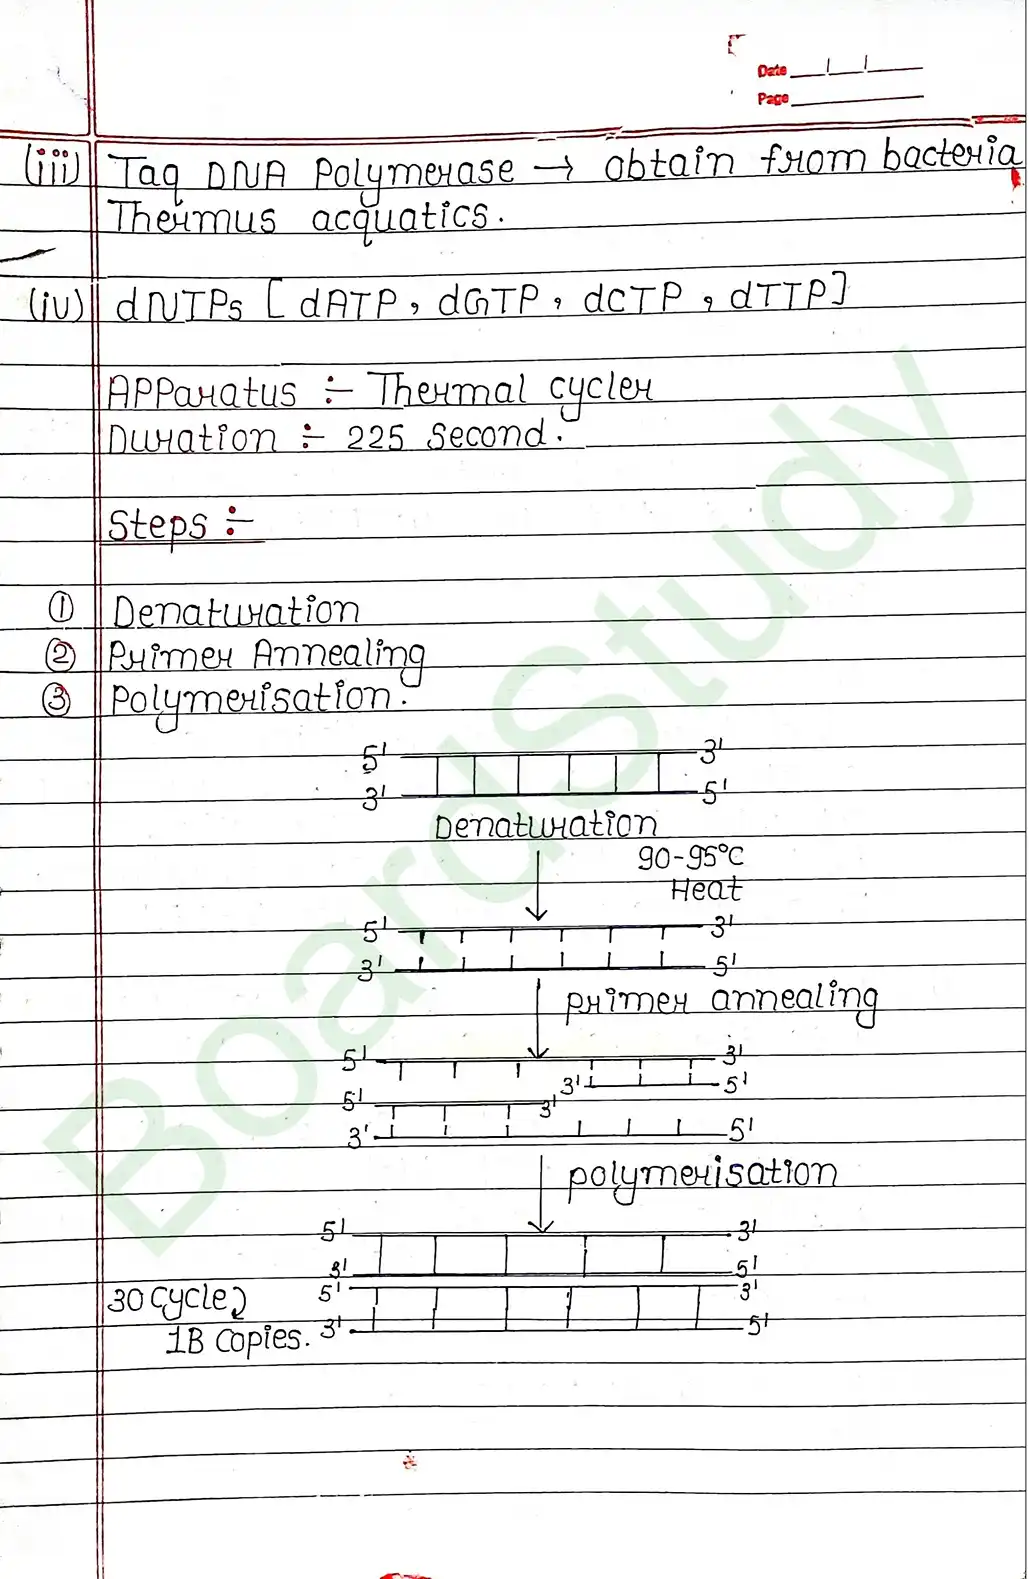 Date
Page
(iii) Taq DNA Polymerase → obtain from bacteria
Thermus acquatics.
(iv) dNTPs [dATP, dGTP, dCTP, dTTP]
Apparatus ÷ Thermal cycler
Duration ÷ 225 Second.
Steps ÷
① Denaturation
② Primer Annealing
③ Polymerisation.
5' 3'
3' 5'
Denaturation
90-95°C
Heat
5' 3'
3' 5'
primer annealing
5' 3'
3' 5'
5' 3'
3' 5'
polymerisation
5' 3'
3' 5'
30 Cycle 5' 3'
1B Copies. 3' 5'
BoardStudy